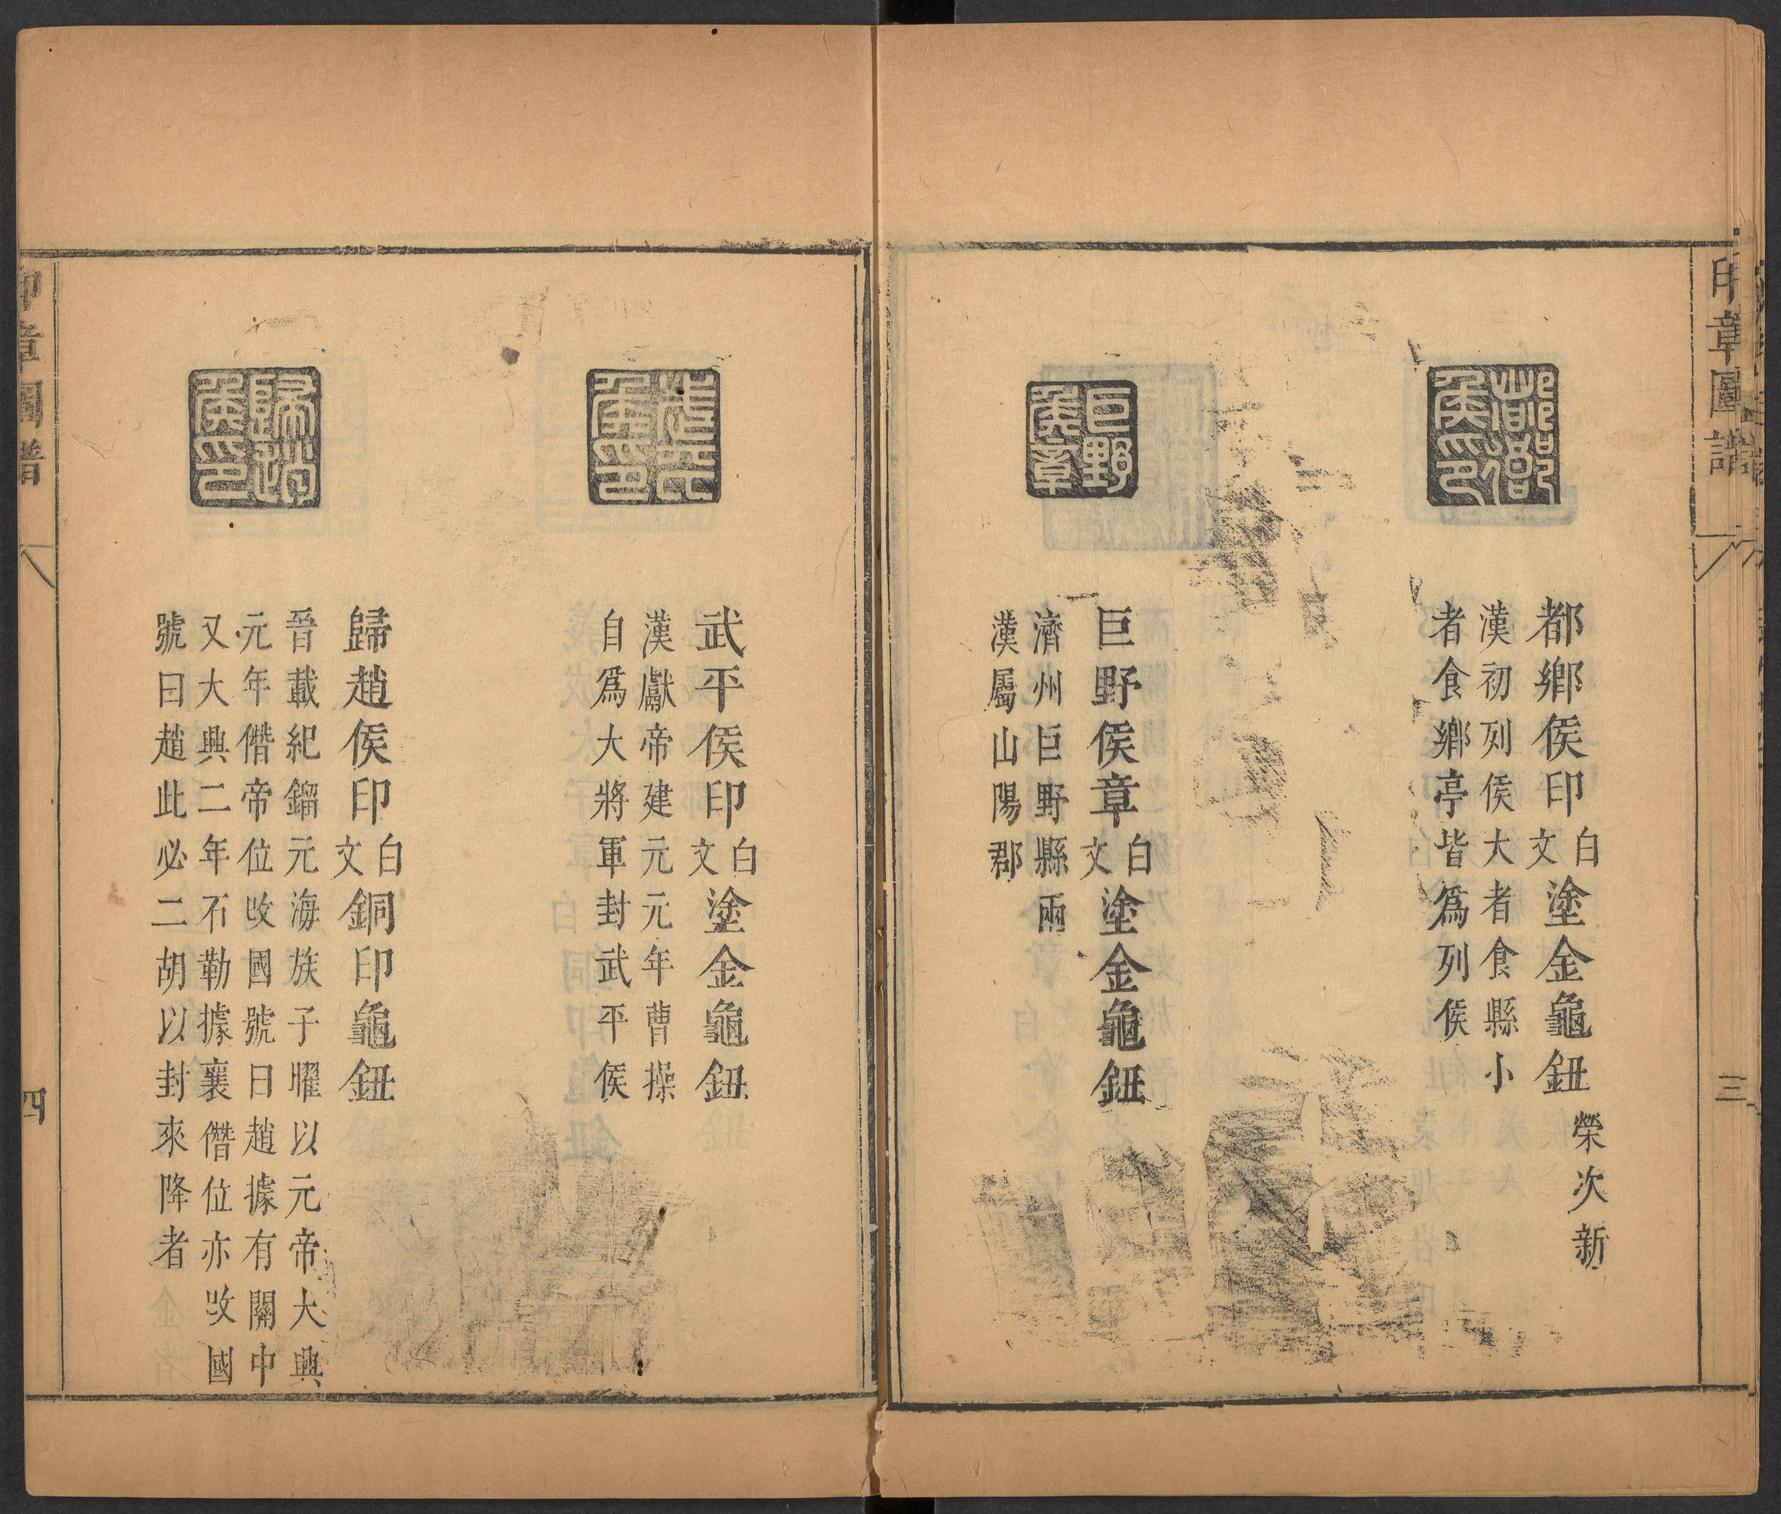 印章圖譜
三
都鄉侯印
都鄉侯印白文塗金龜鈕
榮次新
漢初列侯大者食縣小
者食鄉亭皆爲列侯
巨野侯章
巨野侯章白文塗金龜鈕
濟州巨野縣兩
漢屬山陽郡
武平侯印白文塗金龜鈕
漢獻帝建元元年曹操
自爲大將軍封武平侯
歸趙侯印
歸趙侯印白文銅印龜鈕
晉載紀鎦元海族子曜以元帝大興
元年僭帝位改國號曰趙據有關中
又大興二年石勒據襄僭位亦改國
號曰趙此必二胡以封來降者
印章圖譜
四